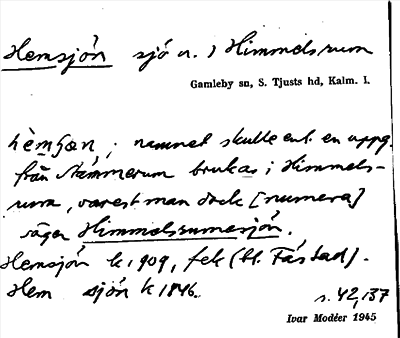 Hemsjön sjö n. i Himmelsrum
Gamleby sn, S. Tjusts hd, Kalm. l.
hèmʃøn; namnet skulle enl. en uppg.
från Stämmerum brukas i Himmels-
rum, varest man dock [numera]
säger Himmelsrumesjön.
Hemsjön k 1909, fek (bl. Fästad).
Hem sjön k 1846.
s. 42,137
Ivar Modéer 1945